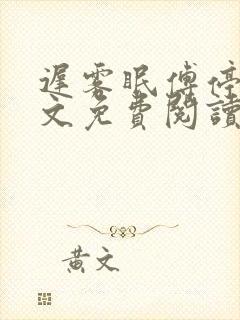 遲霧眠傅停
文免費閱讀
黃文